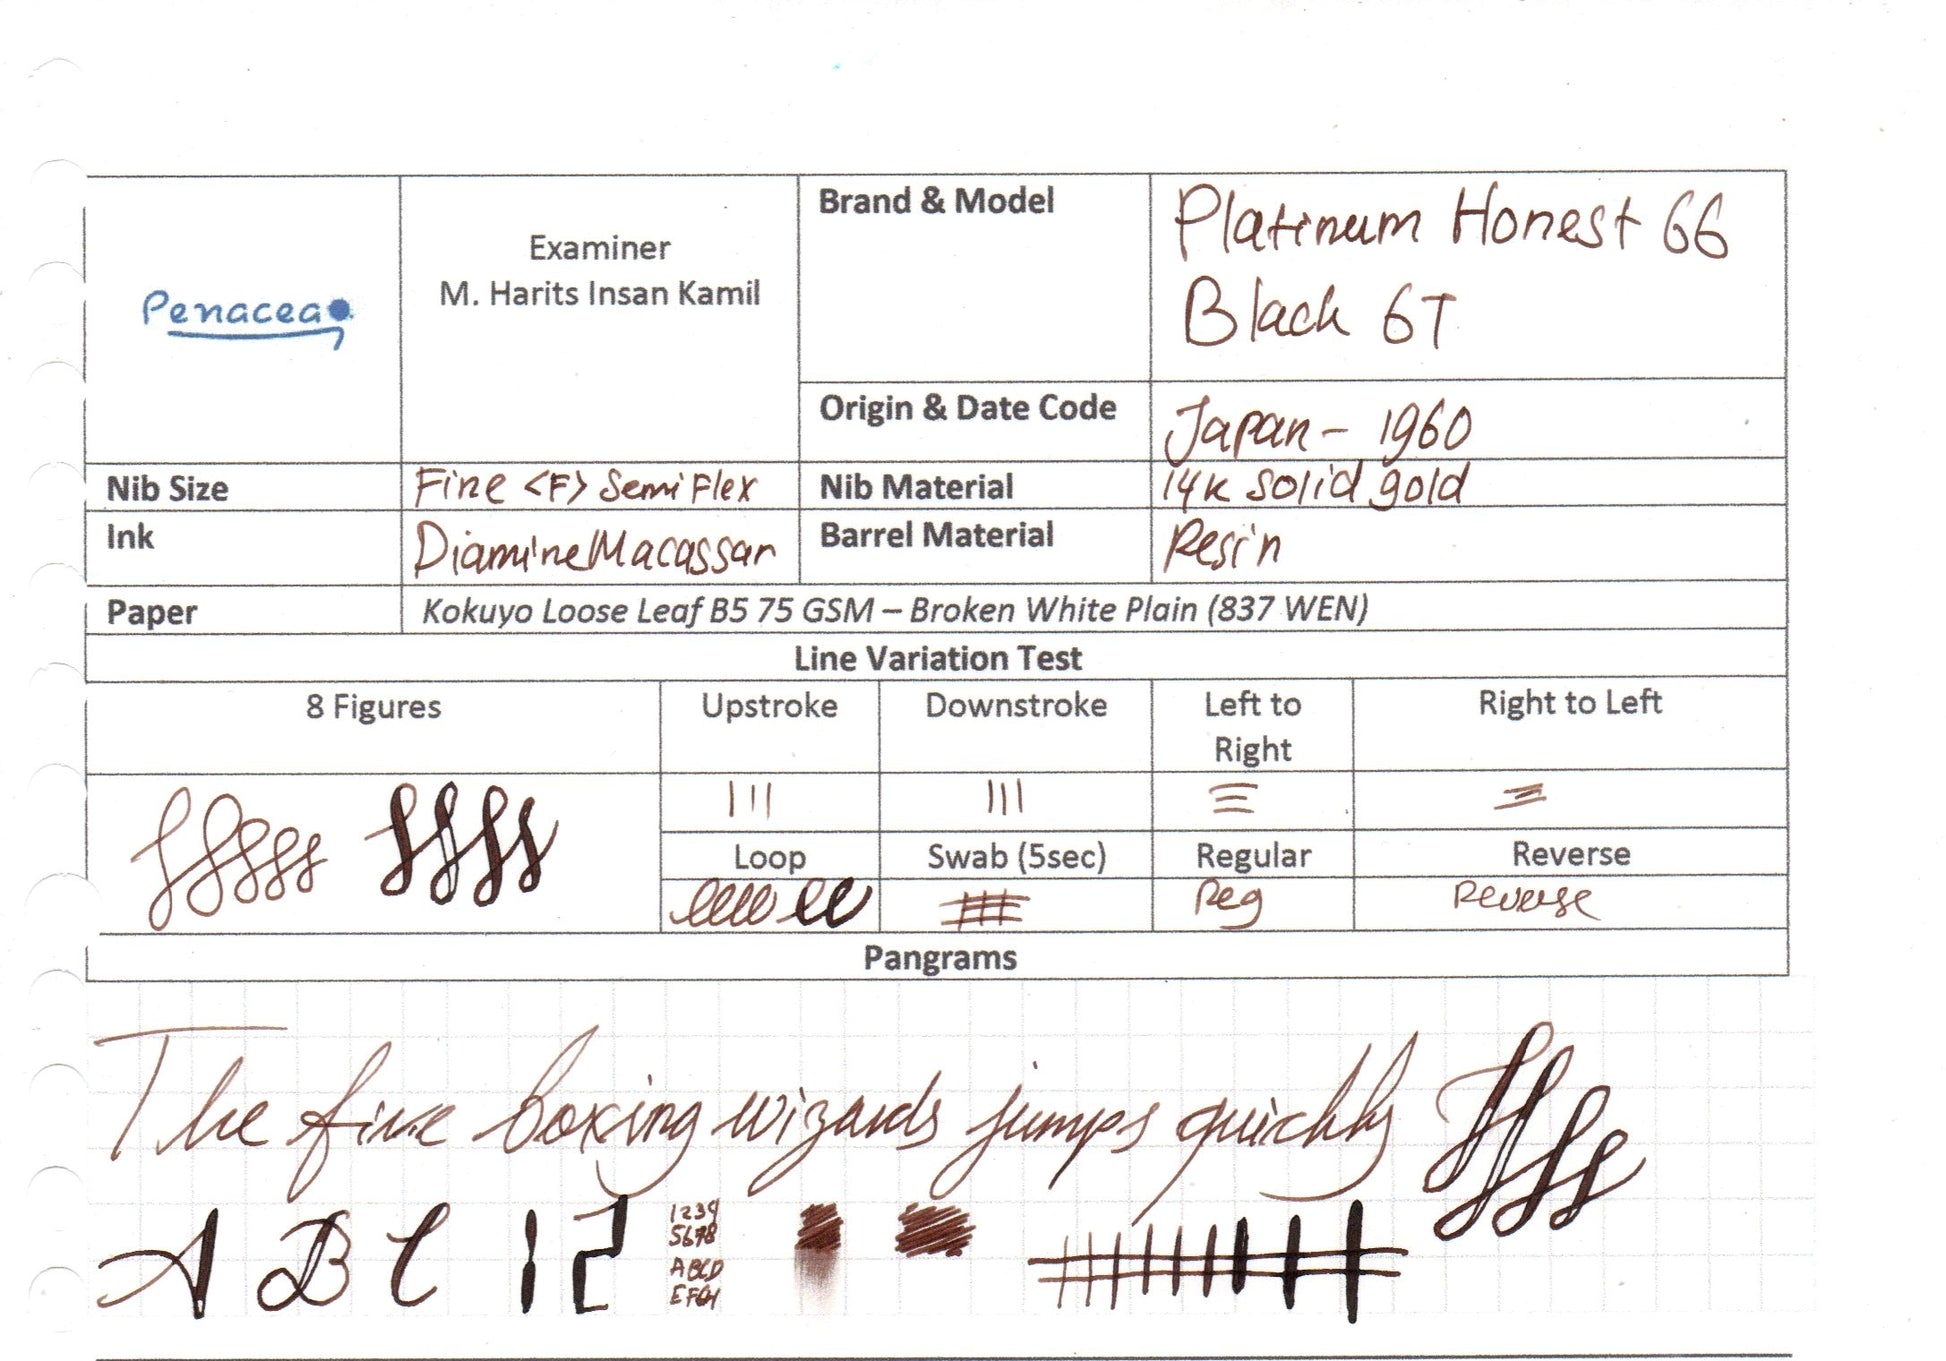 Penacea
Examiner
M. Harits Insan Kamil
Brand & Model
Platinum Honest 66
Black 6T
Origin & Date Code
Japan - 1960
Nib Size
Fine <F> Semi Flex
Nib Material
14K Solid gold
Ink
Diamine Macassar
Barrel Material
Resin
Paper
Kokuyo Loose Leaf B5 75 GSM – Broken White Plain (837 WEN)
Line Variation Test
8 Figures
Upstroke
Downstroke
Left to
Right
Right to Left
Loop
Swab (5sec)
Regular
Reverse
Reg
Reverse
Pangrams
The five boxing wizards jumps quickly
A B C 1 2
1234
5678
ABCD
EFGH